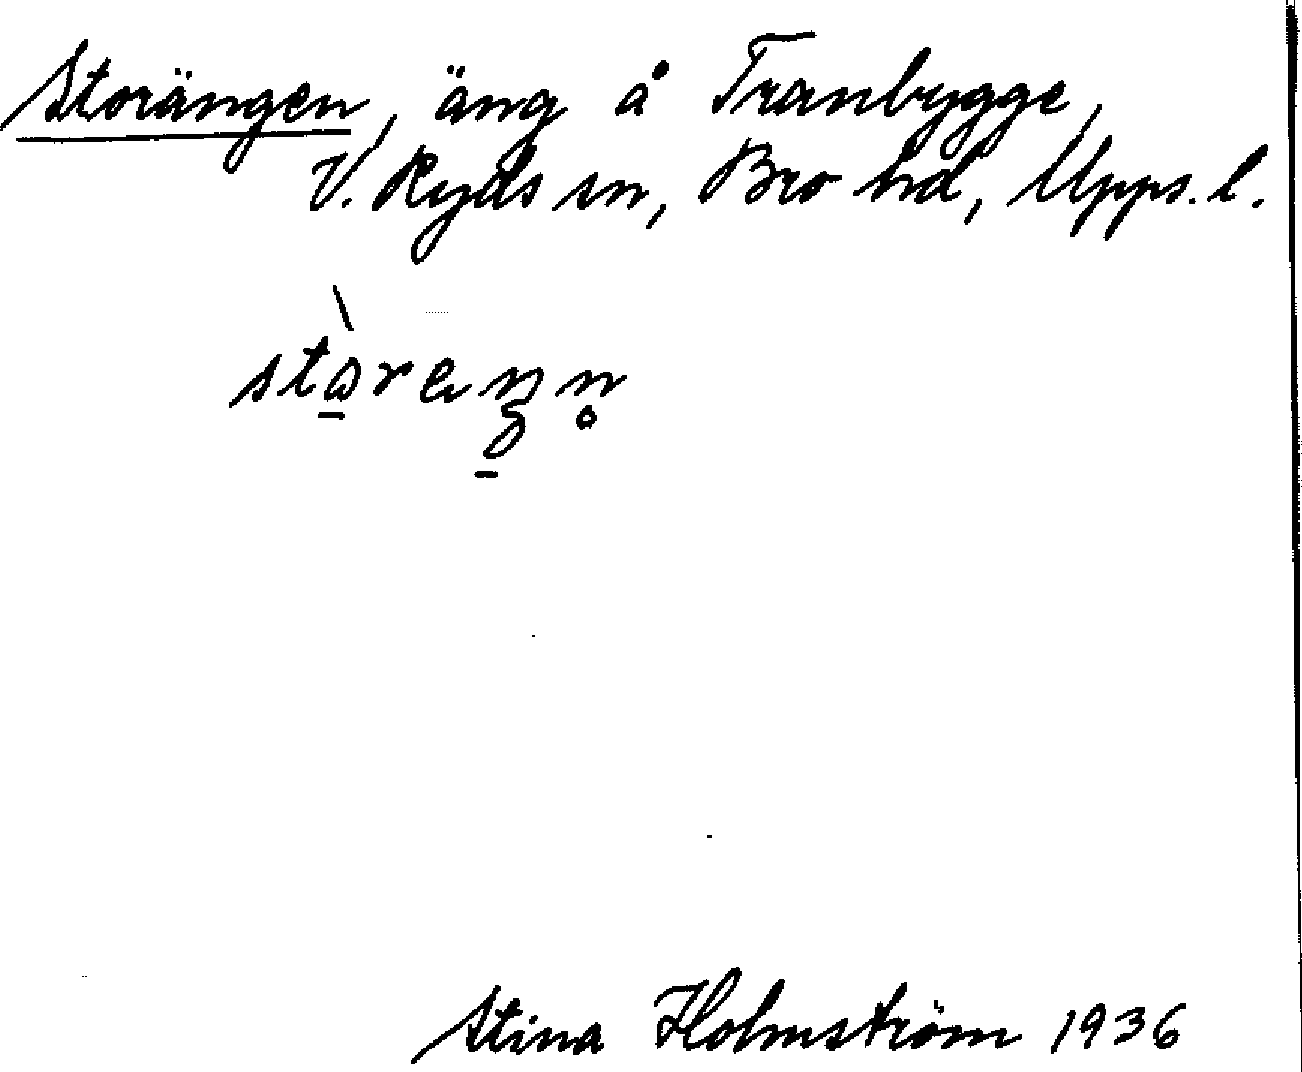 Storängen, äng å Tranbygge,
V. Ryds sn, Bro hd, Upps. l.
Stina Holmström 1936